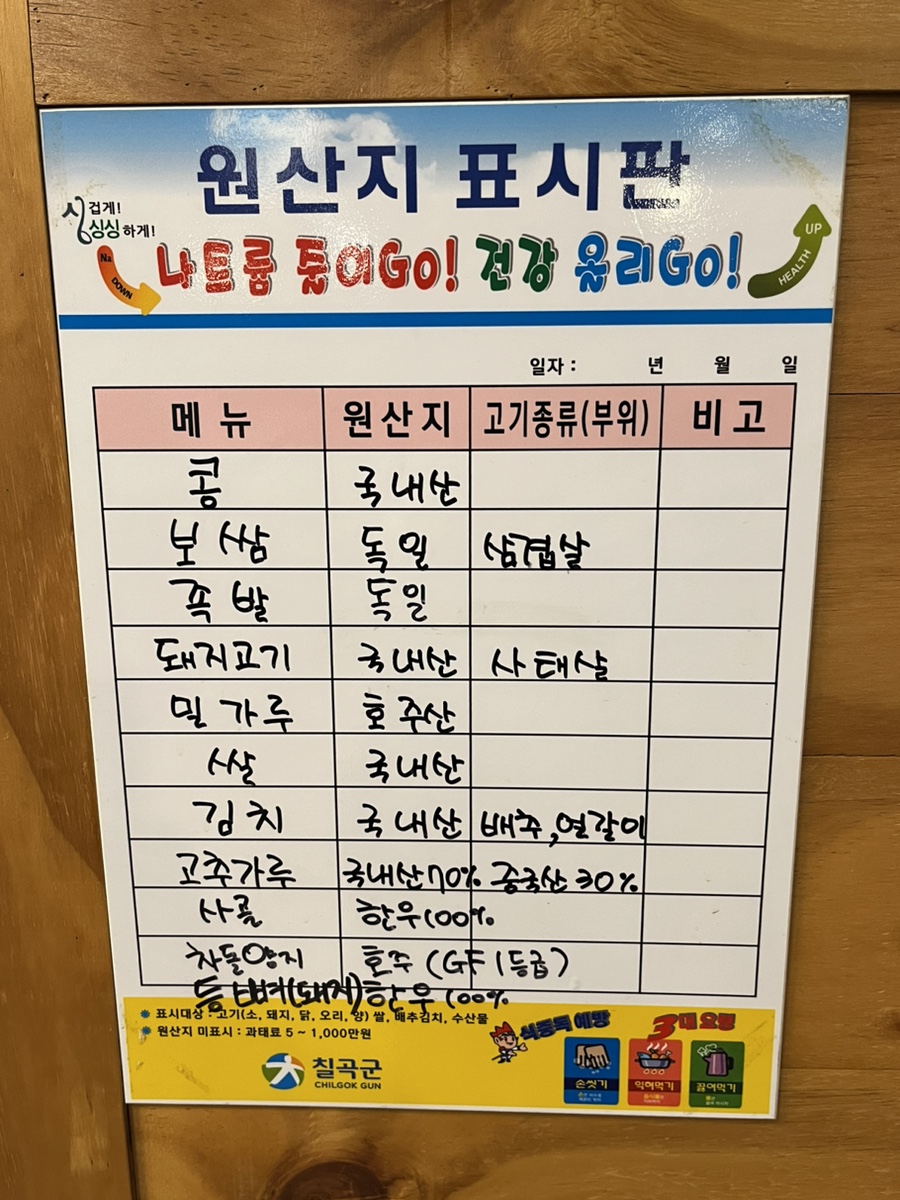 원산지 표시판
싱겁게!
싱싱하게!
Na DOWN
나트륨 줄이GO! 건강 올리GO!
HEALTH UP
일자 : 년 월 일
메뉴 원산지 고기종류(부위) 비고
콩 국내산
보쌈 독일 삼겹살
족발 독일
돼지고기 국내산 사태살
밀가루 호주산
쌀 국내산
김치 국내산 배추,열갈이
고추가루 국내산70% 중국산30%
사골 한우100%
차돌양지 호주 (GF1등급)
등뼈(돼지)한우100%
표시대상 : 고기(소, 돼지, 닭, 오리, 양) 쌀, 배추김치, 수산물
원산지 미표시 : 과태료 5 ~ 1,000만원
식중독 예방 3대 요령
칠곡군
CHILGOK GUN
손씻기 익혀먹기 끓여먹기